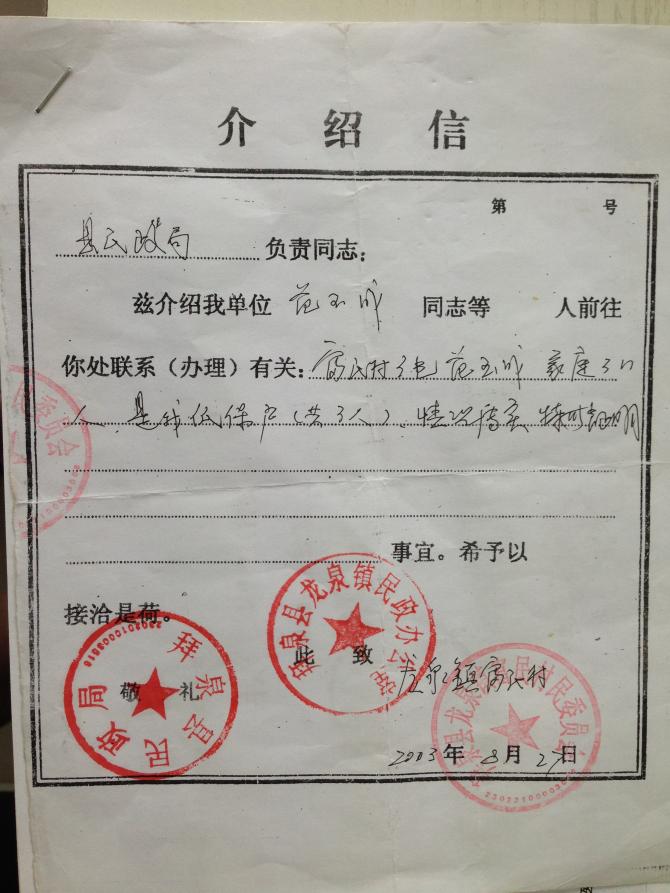 介绍信
第 号
县民政局 负责同志:
兹介绍我单位 范玉成 同志等 人前往
你处联系(办理)有关: 富民村 范玉成 家庭3口
人,是我低保户(共3人),情况属实 特此证明
事宜。希予以
接洽是荷。
此 致
敬 礼
龙泉镇富民村
2003年8月27日
拜泉县民政局
拜泉县龙泉镇民政办公室
拜泉县龙泉镇富民村民委员会
委员会